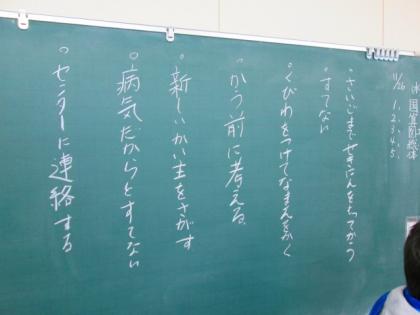 11/26 ㊌
1. 国
2. 算
3.
4.
5. 体
・さいごまでせきにんをもってかう
・すてない
・くびわをつけてなまえをかく
・かう前に考える。
・新しいかい主をさがす
・病気だからとすてない
・センターに連絡する